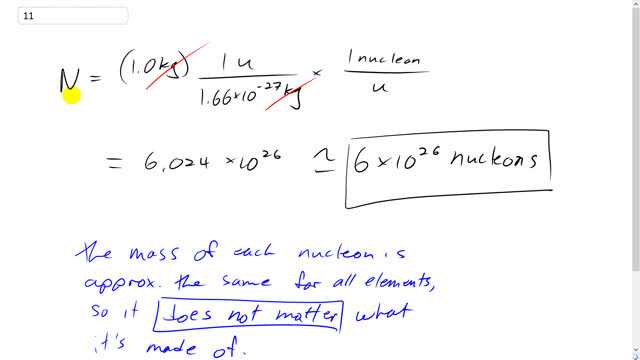 11
N = (1.0kg) 1 u / 1.66×10^-27 kg × 1 nucleon / u
= 6.024 ×10^26 ≃ 6×10^26 nucleons
the mass of each nucleon is
approx. the same for all elements,
so it does not matter what
it's made of.